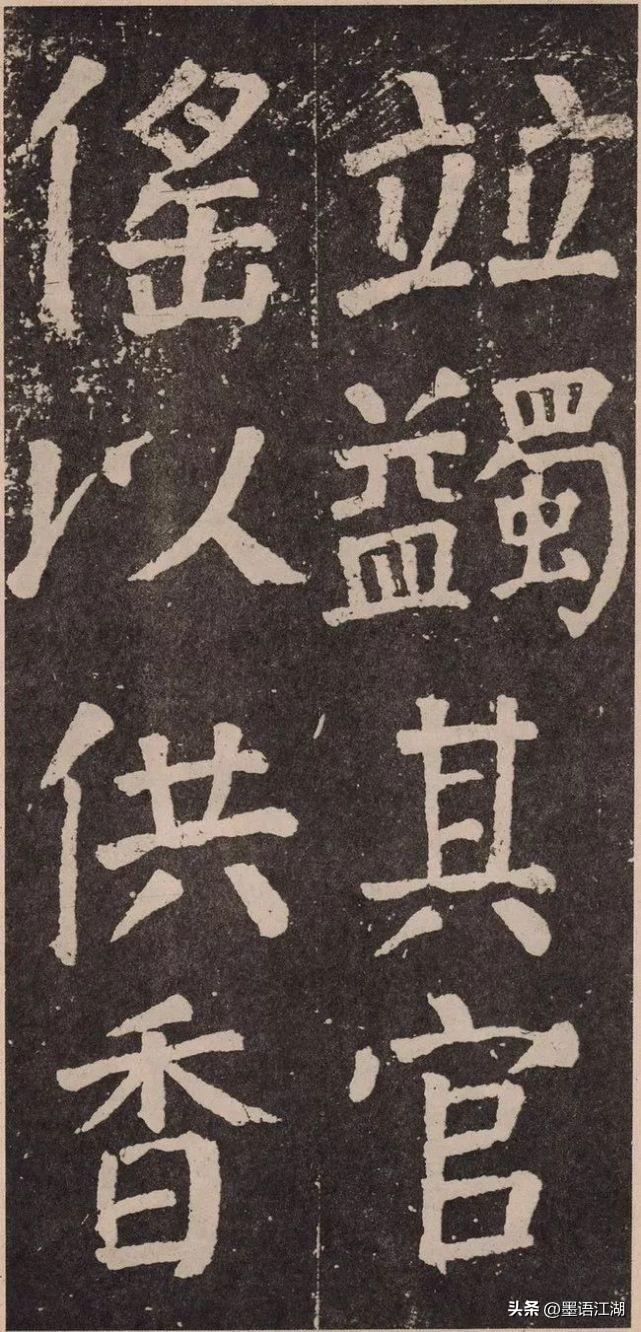 竝蠲其官
傜以供香
头条 @墨语江湖